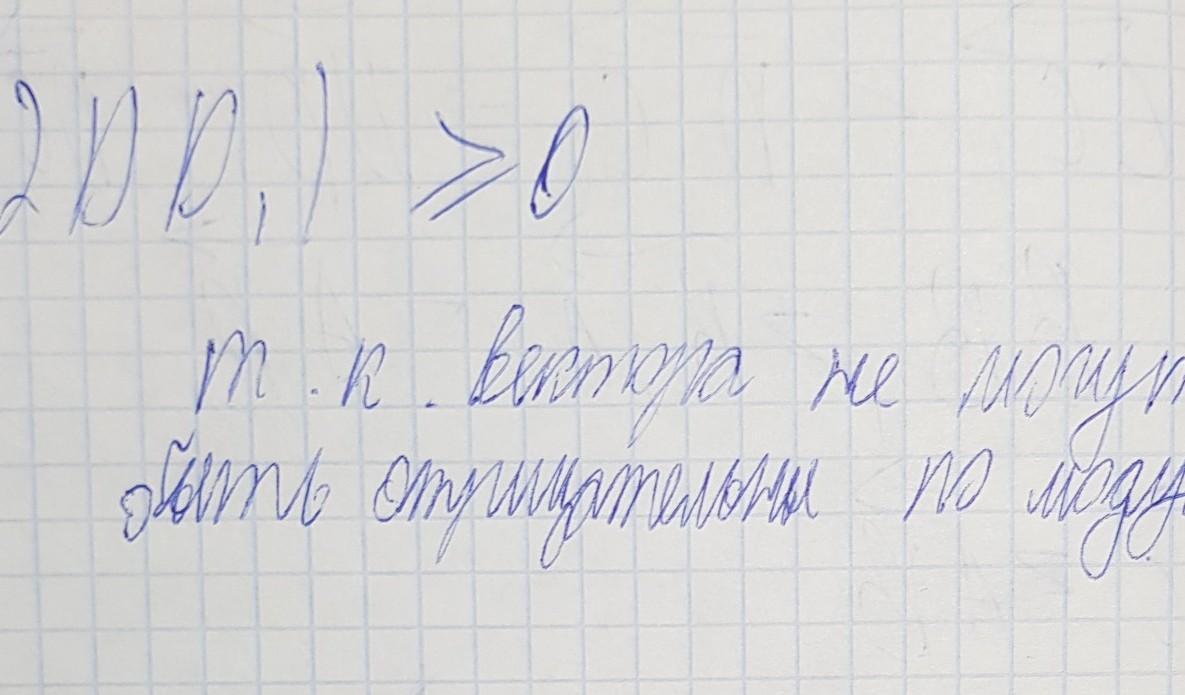 2DD₁| ≥ 0
т.к. вектора не могут
быть отрицательны по моду